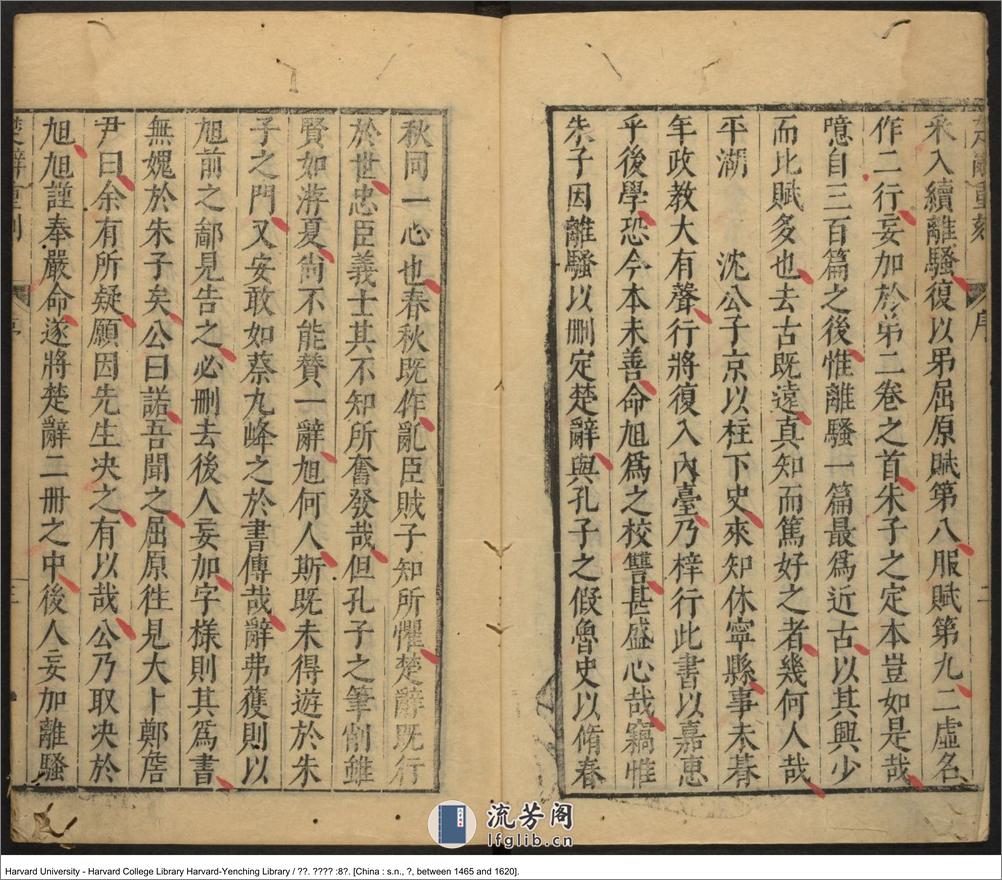 楚辭重刻　序　二
釆入續離騷復以弔屈原賦第八服賦第九二虛名
作二行妄加於弟二卷之首朱子之定本豈如是哉
噫自三百篇之後惟離騷一篇最爲近古以其興少
而比賦多也去古旣遠真知而篤好之者幾何人哉
平湖　沈公子京以柱下史來知休寧縣事未朞
年政教大有聲行將復入內臺乃梓行此書以嘉惠
乎後學恐今本未善命旭爲之校讐甚盛心哉竊惟
朱子因離騷以刪定楚辭與孔子之假魯史以脩春
秋同一心也春秋旣作亂臣賊子知所懼楚辭旣行
於世忠臣義士其不知所奮發哉但孔子之筆削雖
賢如游夏尙不能賛一辭旭何人斯旣未得遊於朱
子之門又安敢如蔡九峰之於書傳哉辭弗獲則以
旭前之鄙見告之必刪去後人妄加字樣則其爲書
無媿於朱子矣公曰諾吾聞之屈原徃見大卜鄭詹
尹曰余有所疑願因先生决之有以哉公乃取决於
旭旭謹奉嚴命遂將楚辭二冊之中後人妄加離騷
楚辭重刻　序　三
流芳阁
lfglib.cn
Harvard University - Harvard College Library Harvard-Yenching Library / ??. ???? :8?. [China : s.n., ?, between 1465 and 1620].